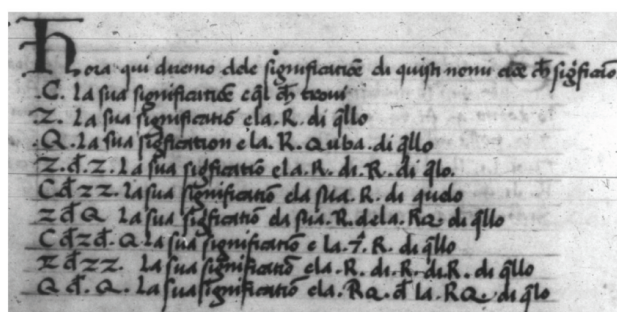 Hora qui diremo dele significatiõe di quisti nomi cioe ch̃ sig̃ficano
.C. La sua significatiõe e q̃l ch̃ trovi
Z. La sua significatiõ e la .R. di q̃llo
.Q. La sua sigfication e la .R. Quba. di q̃llo
Z. d̃. Z. La sua sigficatiõ e la .R. di .R. di q̃lo.
C d̃ z z. La sua significatiõ e la sua .R. di quelo
z d̃ Q La sua sigficatiõ e la sua .R. de la .RQ. di q̃llo
C d̃ z d̃. Q. La sua significatiõ e la .R. di q̃llo
z d̃ z z. La sua significatiõ e la .R. di .R. di .R. di q̃llo
Q d̃. Q. La sua significatiõ e la .RQ. d̃ la .RQ. di q̃lo